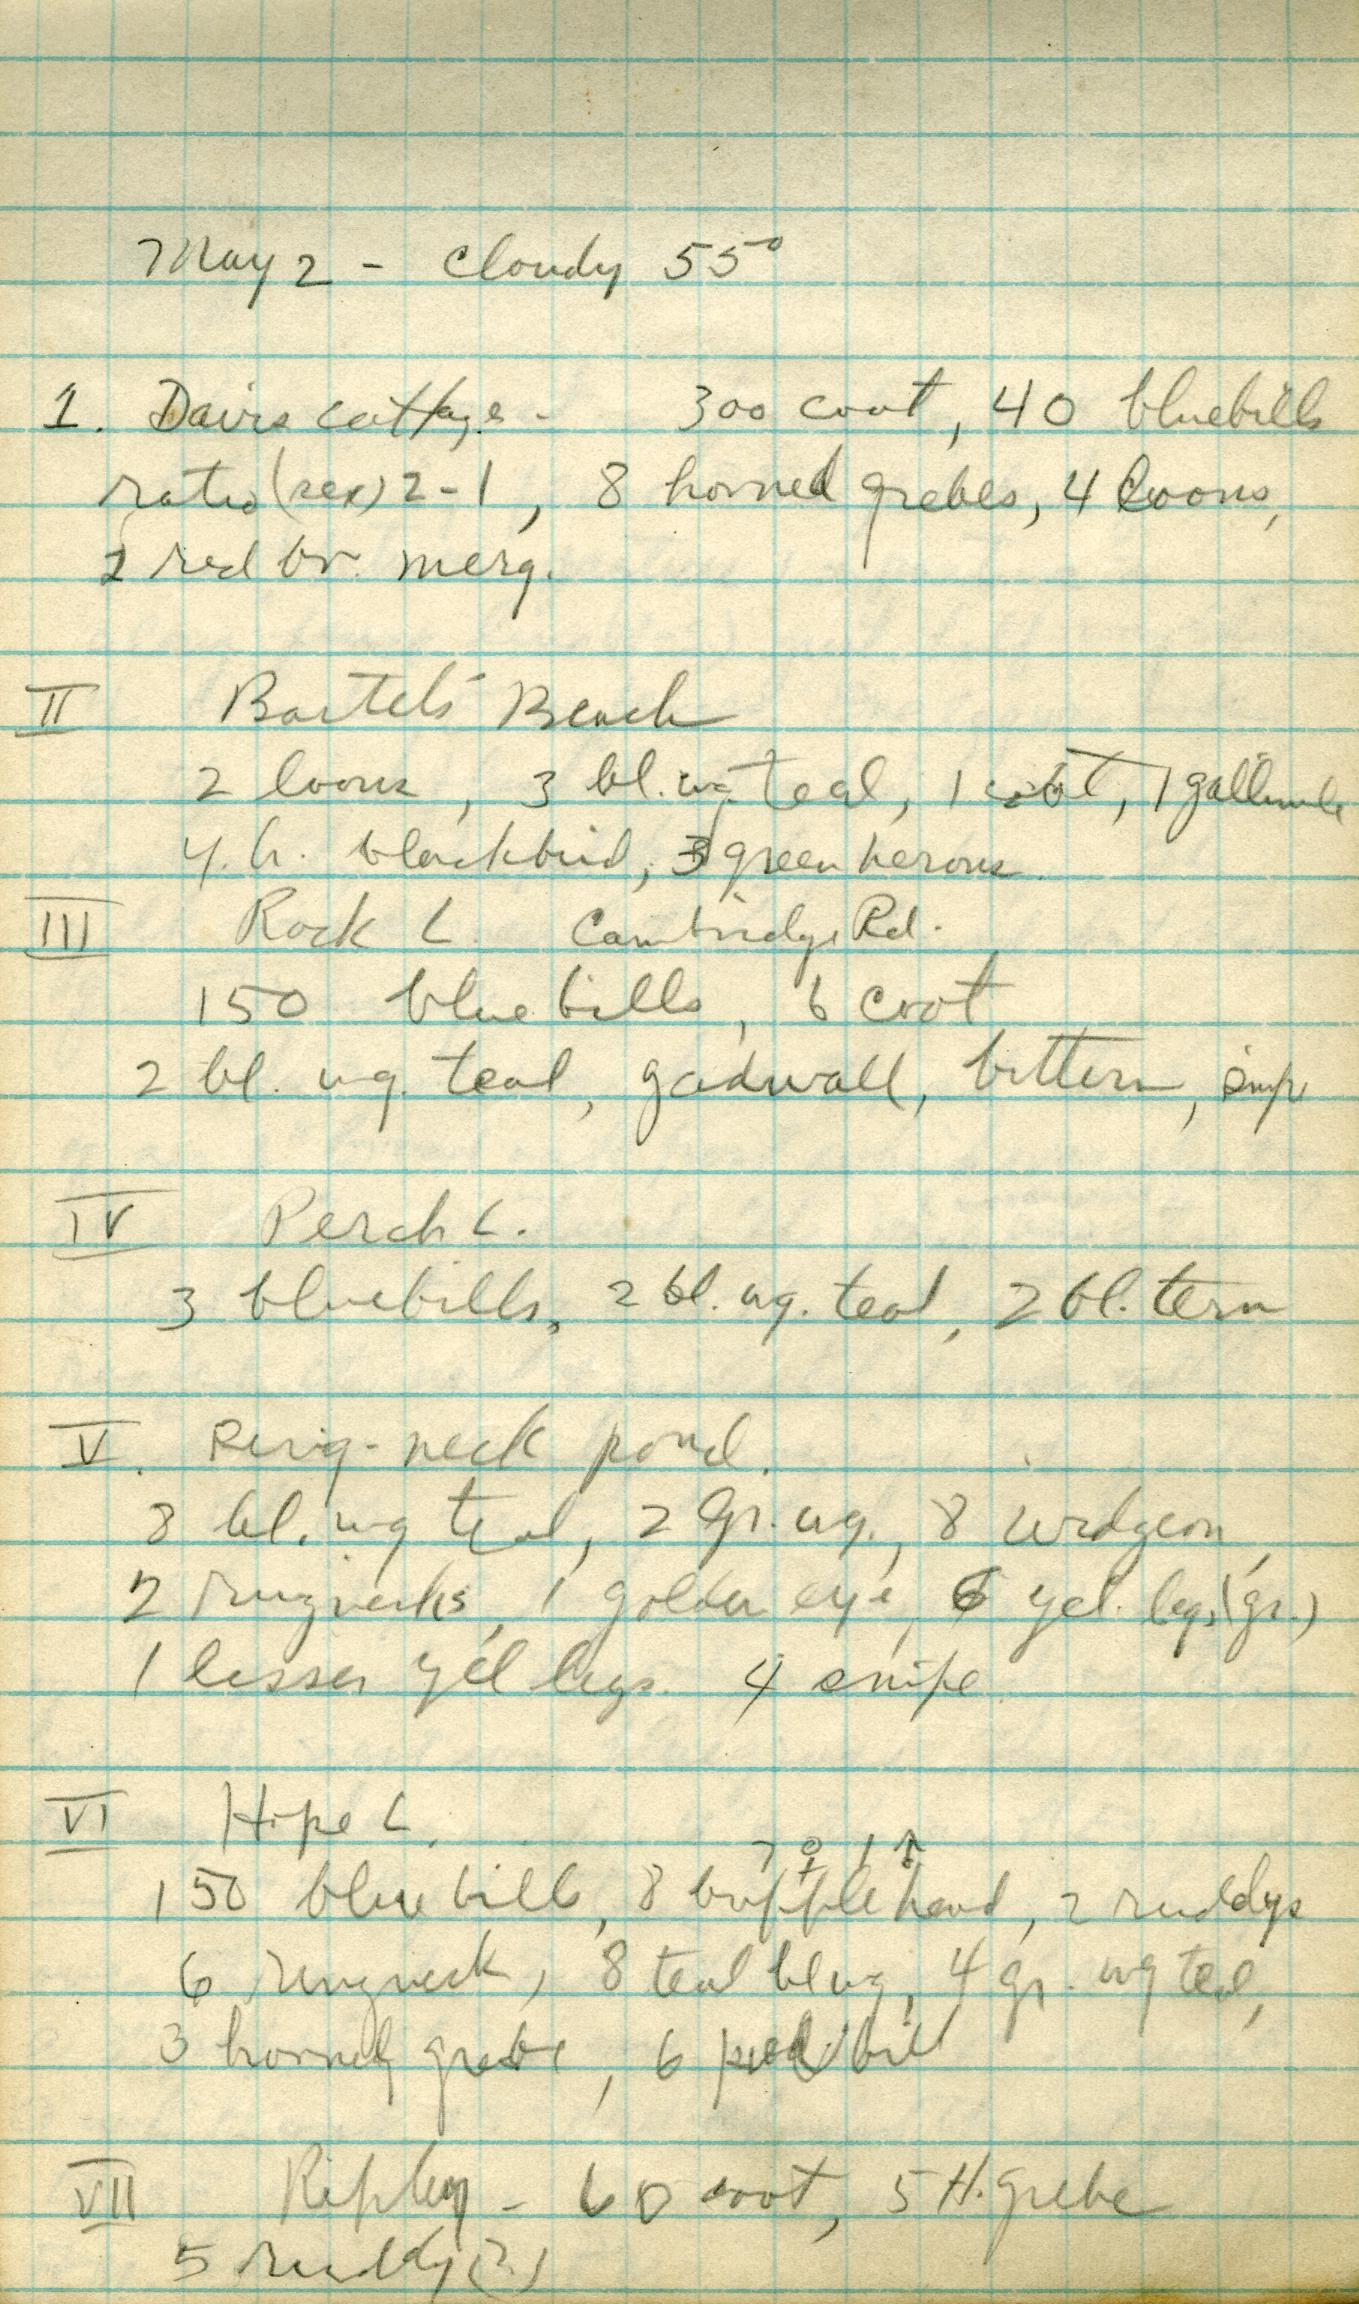 May 2 - Cloudy 55°
1. Davis cottage - 300 coot, 40 bluebills
ratio (sex) 2-1, 8 horned grebes, 4 loons,
2 red br. merg.
II Bartels' Beach
2 loons, 3 bl. wg. teal, 1 coot, 1 gallinule
y. h. blackbird, 3 green herons
III Rock L. Cambridge Rd.
150 bluebills, 6 coot
2 bl. wg. teal, gadwall, bittern, snipe
IV Perch L.
3 bluebills, 2 bl. wg. teal, 2 bl. tern
V. Ring-neck pond.
8 bl. wg teal, 2 gr. wg., 8 widgeon,
2 ringnecks, 1 golden eye, 6 yel. legs (gr.)
1 lesser yel legs. 4 snipe
VI Hope L.
7 ♀ 1 ♂
150 blue bills, 8 bufflehead, 2 ruddys
6 ringneck, 8 teal bl wg, 4 gr. wg teal,
3 horned grebe, 6 pied bill
VII Ripley - 60 coot, 5 H. grebe
5 ruddy (?)